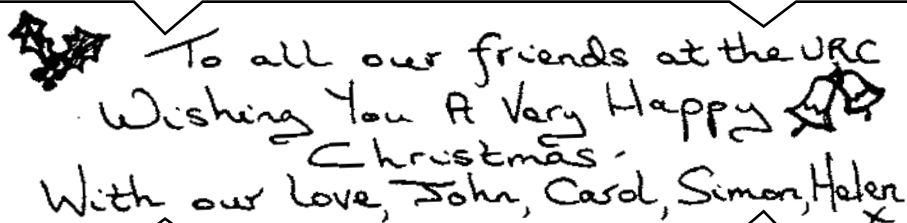 To all our friends at the URC
Wishing You A Very Happy
Christmas.
With our love, John, Carol, Simon, Helen
x